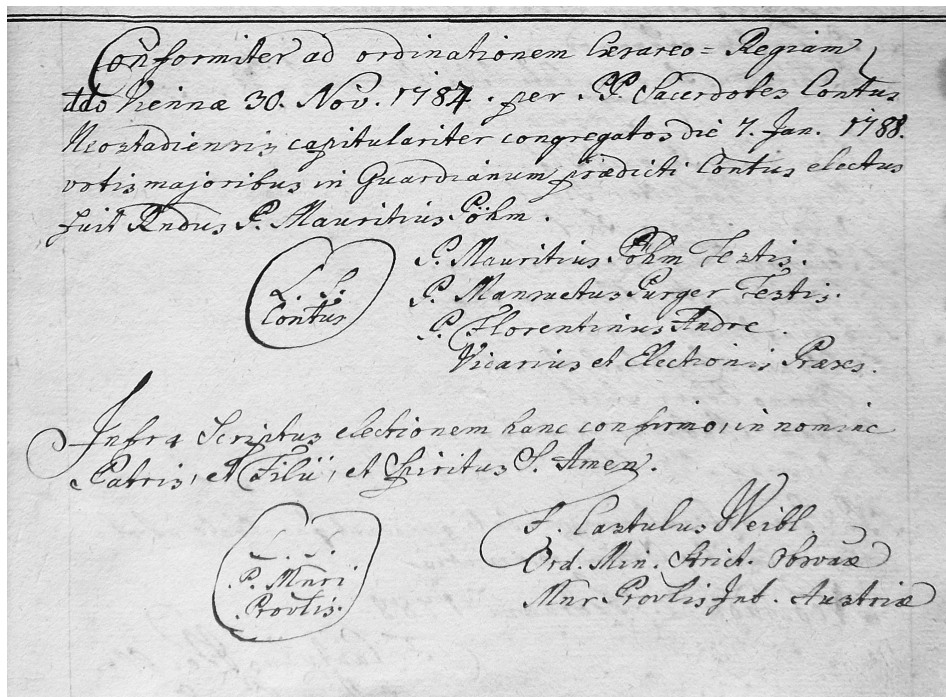 Conformiter ad ordinationem Cæsareo = Regiam
ddo Viennæ 30. Nov. 1787. per P.P. Sacerdotes Contus
Neostadiensis capitulariter congregatos die 7. Jan. 1788.
votis majoribus in Guardianum prædicti Contus electus
fuit Rndus P. Mauritius Pöhm.
P. Mauritius Pöhm Testis.
L. S.
P. Mansuetus Purger Testis.
Contus
P. Florentinus Andre.
Vicarius et Electionis Præses.
Infra Scriptus electionem hanc confirmo, in nomine
Patris, et Filii, et Spiritus S. Amen.
F. Castulus Weibl.
L. S.
Ord. Min. Strict. Obsvæ
P. Mnri
Mnr Provlis Inf. Austriæ
Provlis.